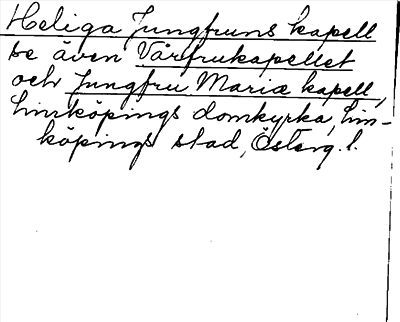 Heliga Jungfruns kapell
se även Vårfrukapellet
och Jungfru Mariæ kapell,
Linköpings domkyrka, Lin-
köpings stad, Österg. l.